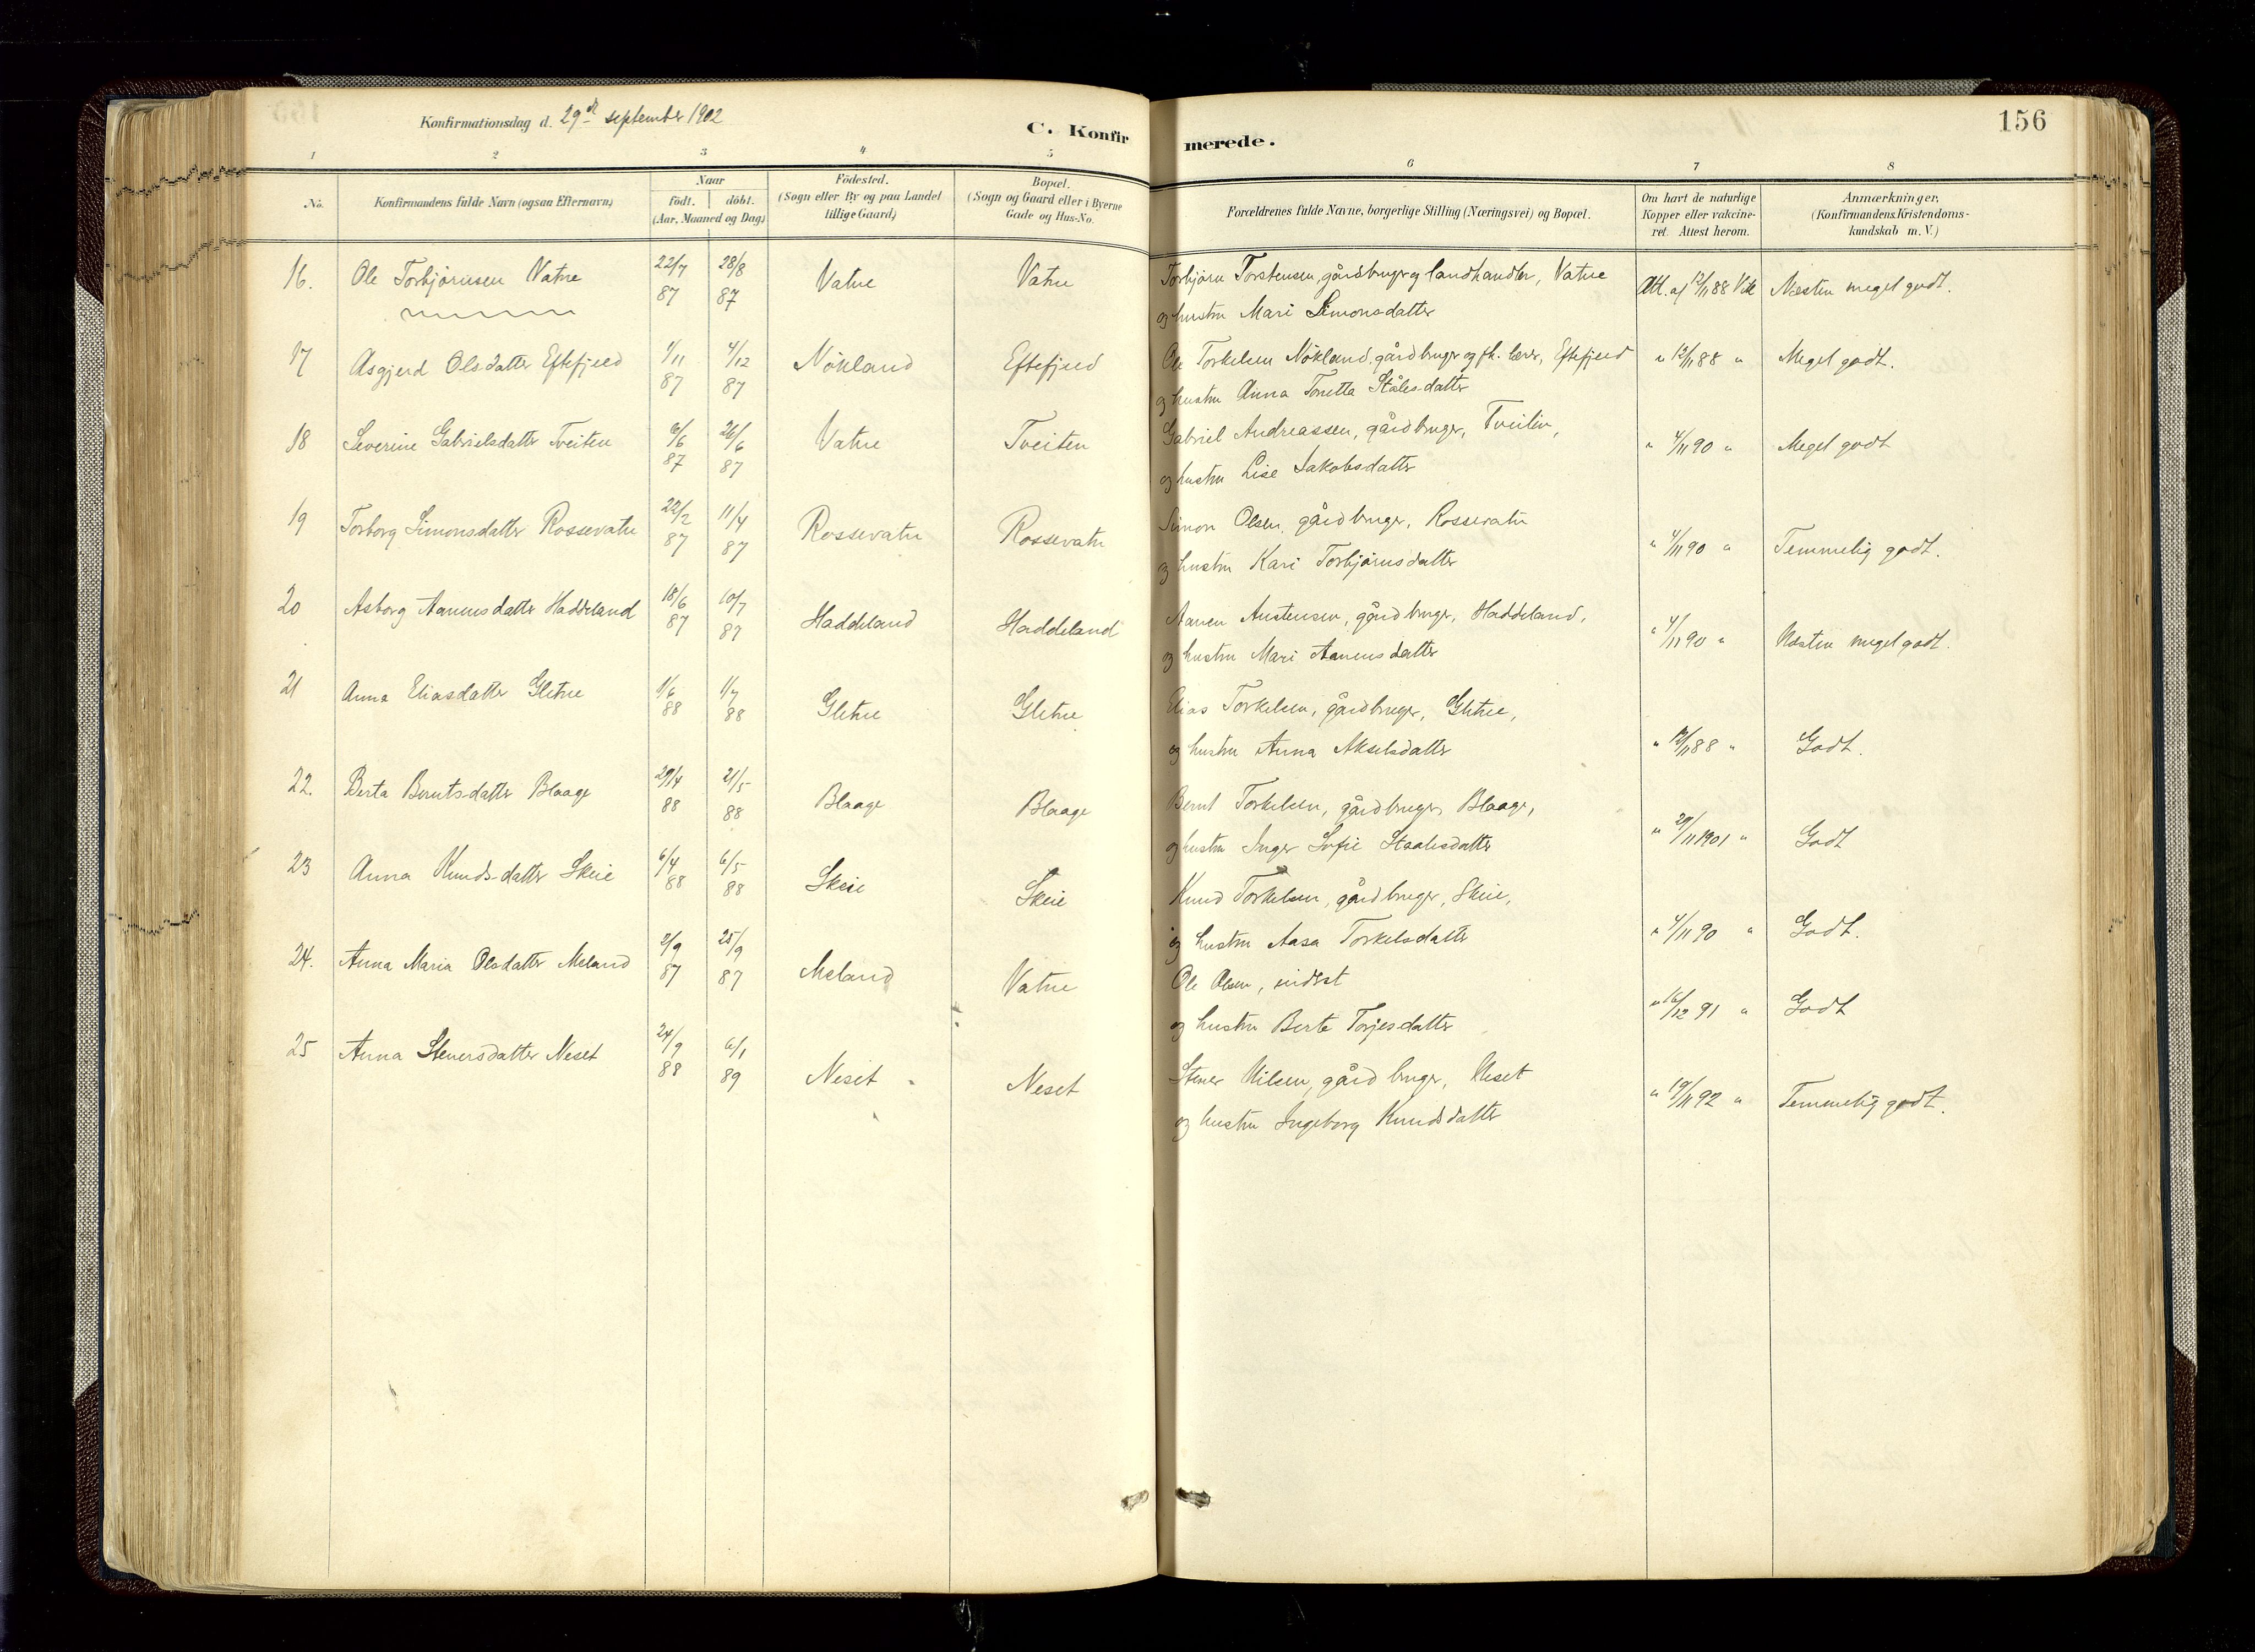 156
Konfirmationsdag d. 29de september 1902
C. Konfirmerede.
1 2 3 4 5 6 7 8
No.
Konfirmandens fulde Navn (ogsaa Efternavn)
Naar
født. døbt.
(Aar, Maaned og Dag)
Fødested.
(Sogn eller By og paa Landet
tillige Gaard)
Bopæl.
(Sogn og Gaard eller i Byerne
Gade og Hus-No.
Forældrenes fulde Navne, borgerlige Stilling (Næringsvei) og Bopæl.
Om havt de naturlige
Kopper eller vakcine-
ret. Attest herom.
Anmærkninger.
(Konfirmandens Kristendoms-
kundskab m. V.)
16. Ole Torbjørnsen Vatne 22/7 87 28/8 87 Vatne Vatne Torbjørn Torstensen, gårdbruger og landhandler, Vatne Att. af 12/11 88 Vik Næsten meget godt.
og hustru Mari Simonsdatter
17 Asgjerd Olsdatter Eftefjeld 1/11 87 4/12 87 Nökland Eftefjeld Ole Torkelsen Nökland, gårdbruger og fh. lærer, Eftefjeld " 12/11 88 " Meget godt.
og hustru Anna Tonetta Stålesdatter
18 Severine Gabrielsdatter Tveiten 6/6 87 26/6 87 Vatne Tveiten Gabriel Andreassen, gårdbruger, Tveiten, " 4/11 90 " Meget godt
og hustru Lise Jakobsdatter
19 Torborg Simonsdatter Rossevatn 22/2 87 11/4 87 Rossevatn Rossevatn Simon Olsen, gårdbruger, Rossevatn " 4/11 90 " Temmelig godt.
og hustru Kari Torbjørnsdatter
20 Asborg Aanensdatter Haddeland 18/6 87 10/7 87 Haddeland Haddeland Aanen Austensen, gårdbruger, Haddeland, " 4/11 90 " Næsten meget godt.
og hustru Mari Aanensdatter
21 Anna Eliasdatter Gletne 1/6 88 1/7 88 Gletne Gletne Elias Torkelsen, gårdbruger, Gletne, " 12/11 88 " Godt.
og hustru Anna Akselsdatter
22. Berta Berntsdatter Blaage 29/4 88 21/5 88 Blaage Blaage Bernt Torkelsen, gårdbruger, Blaage, " 29/11 1901 " Godt
og hustru Inger Sofie Staalesdatter
23 Anna Knudsdatter Skeie 6/4 88 6/5 88 Skeie Skeie Knud Torkelsen, gårdbruger, Skeie, " 4/11 90 " Godt.
og hustru Aasa Torkelsdatter
24. Anna Maria Olsdatter Meland 2/9 87 25/9 87 Meland Vatne Ole Olsen, inderst " 16/12 91 " Godt
og hustru Berte Torjesdatter
25 Anna Stenersdatter Neset 24/9 88 6/1 89 Neset Neset Stener Nilsen, gårdbruger, Neset " 19/11 92 " Temmelig godt.
og hustru Ingeborg Knudsdatter